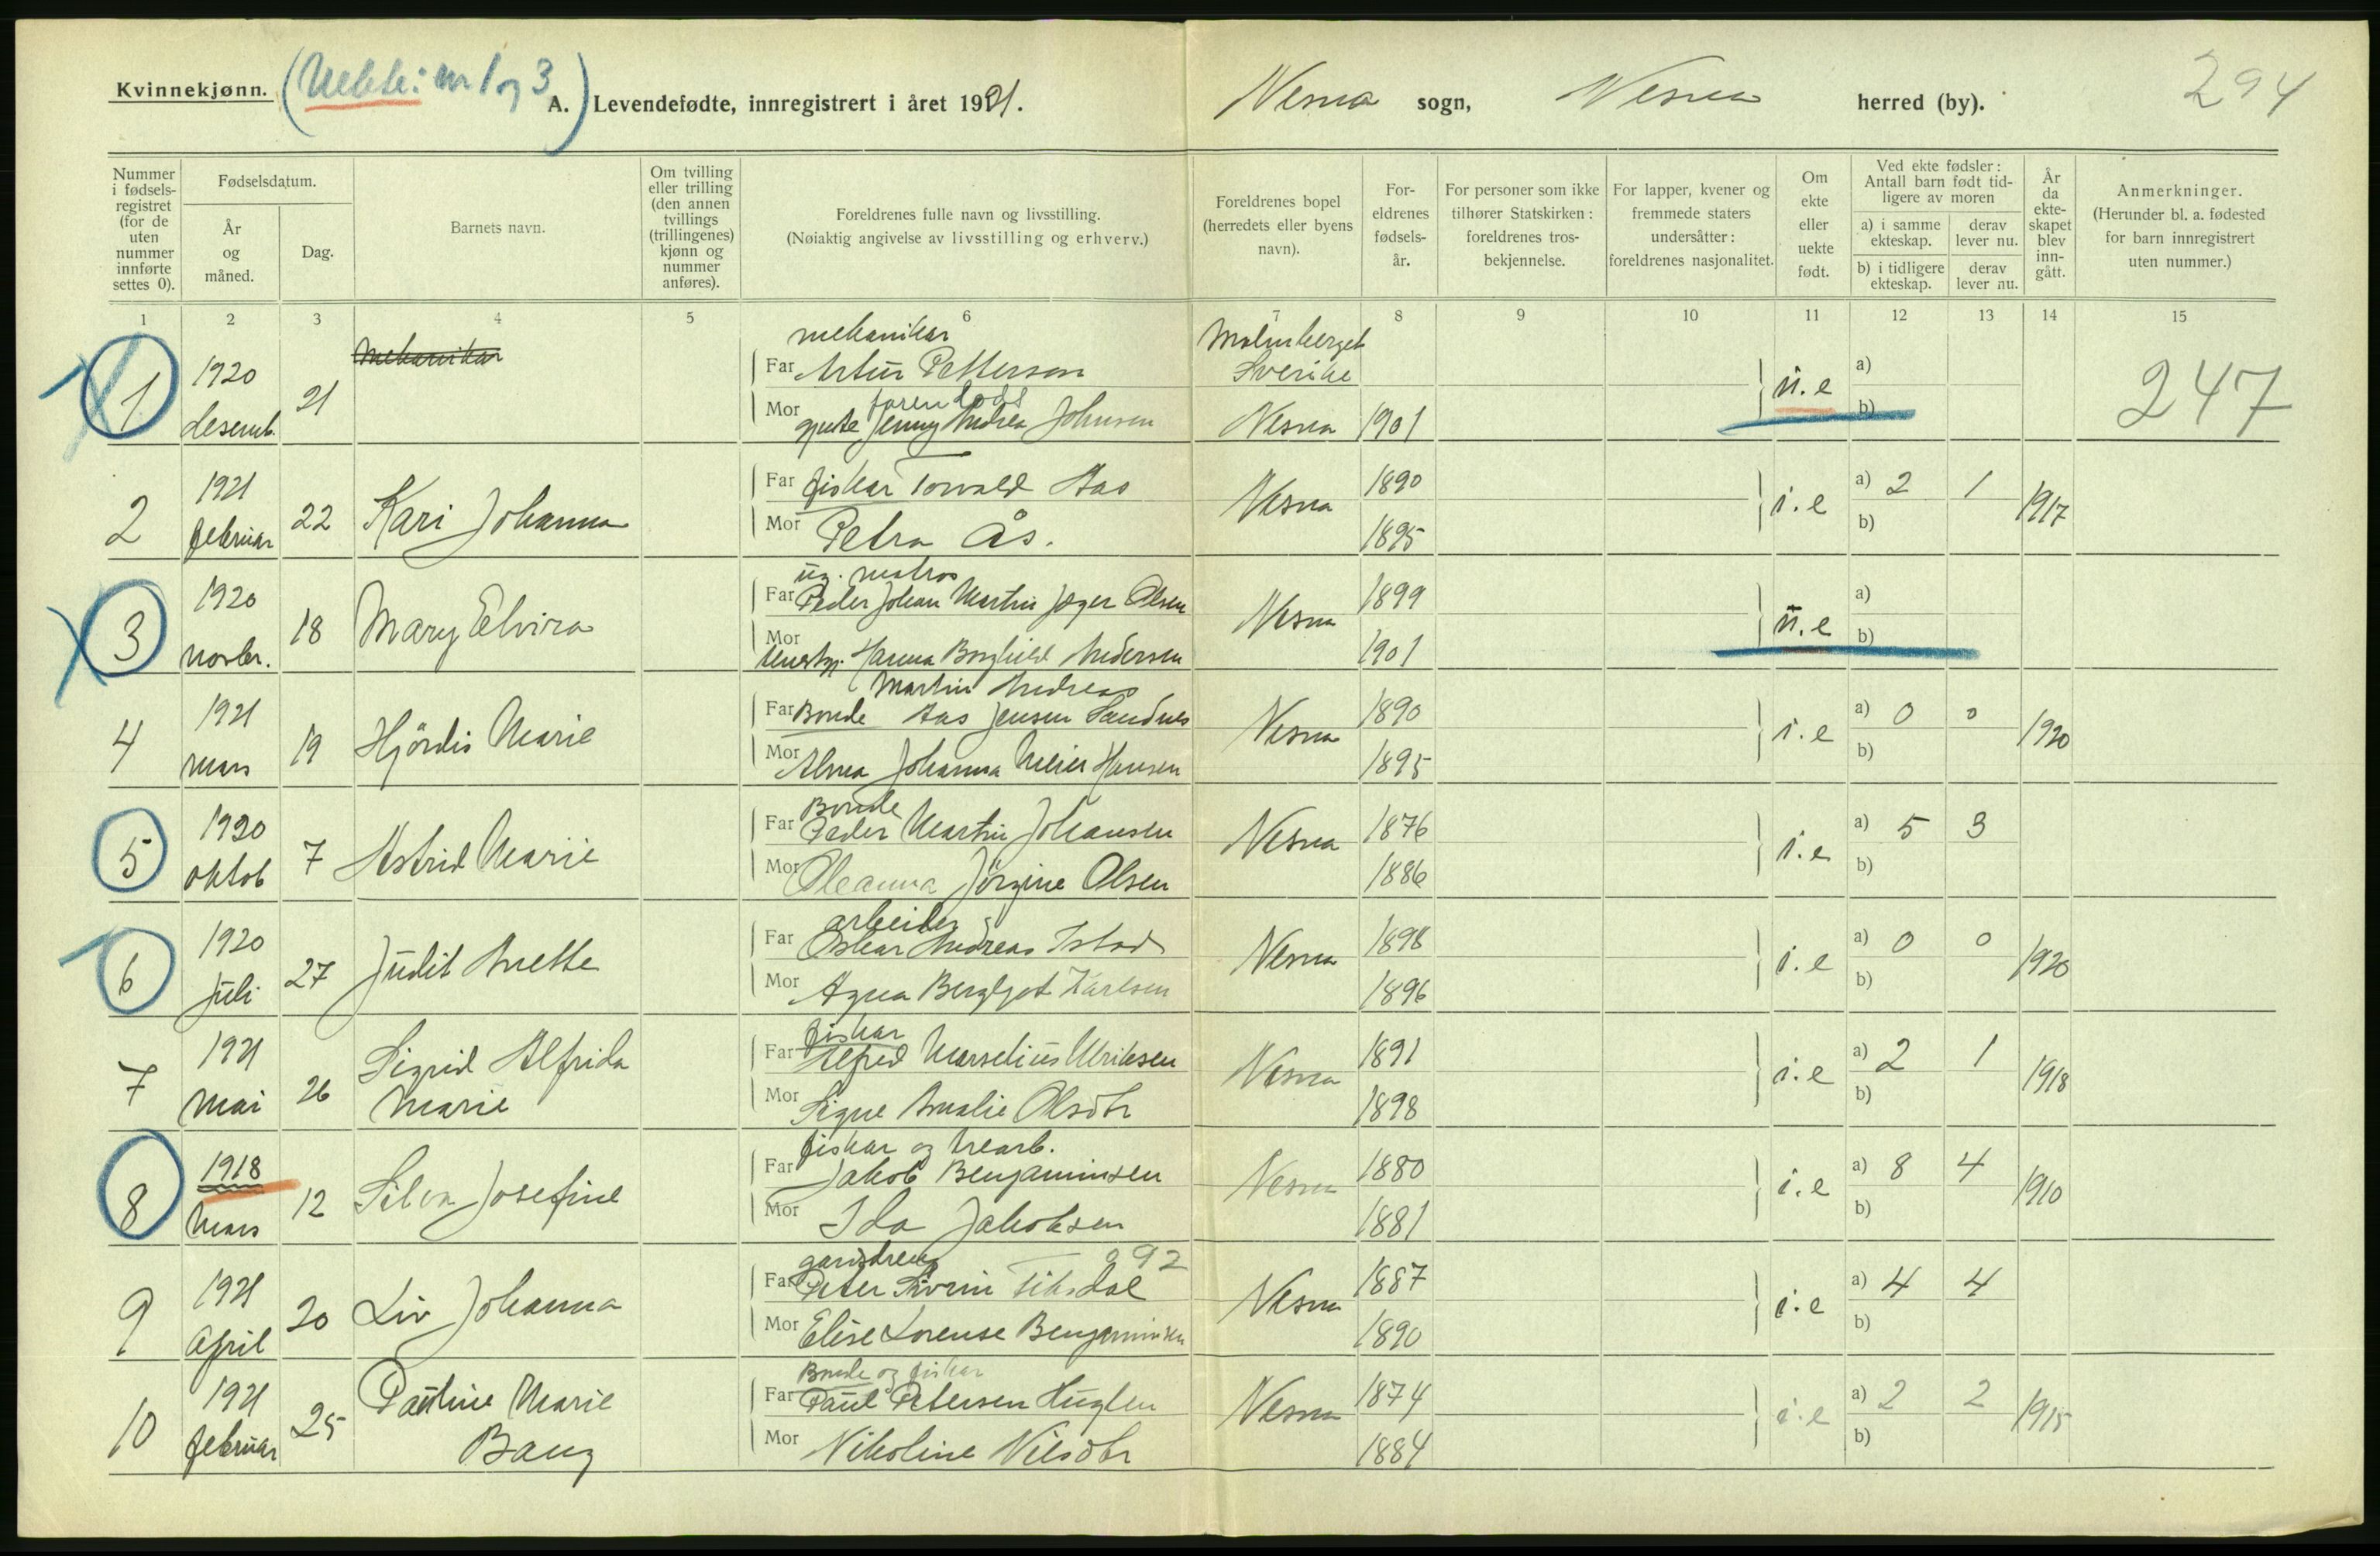 Kvinnekjønn.
(Uekte: nr 1 og 3)
A. Levendefødte, innregistrert i året 1921.
Nesna sogn, Nesna herred (by).
294
Nummer i fødsels-registret (for de uten nummer innførte settes 0).
Fødselsdatum.
År og måned.
Dag.
Barnets navn.
Om tvilling eller trilling (den annen tvillings (trillingenes) kjønn og nummer anføres).
Foreldrenes fulle navn og livsstilling.
(Nøiaktig angivelse av livsstilling og erhverv.)
Foreldrenes bopel (herredets eller byens navn).
For-eldrenes fødsels-år.
For personer som ikke tilhører Statskirken: foreldrenes tros-bekjennelse.
For lapper, kvener og fremmede staters undersåtter: foreldrenes nasjonalitet.
Om ekte eller uekte født.
Ved ekte fødsler: Antall barn født tid-ligere av moren
a) i samme ekteskap.
derav lever nu.
b) i tidligere ekteskap.
derav lever nu.
År da ekte-skapet blev inn-gått.
Anmerkninger.
(Herunder bl. a. fødested for barn innregistrert uten nummer.)
1 2 3 4 5 6 7 8 9 10 11 12 13 14 15
1 1920 desemb. 21 mekanikar
mekanikar
Far Artur Petterson Malmberget Sverike
Mor gjente Jenny Andrea Johnsen Nesna 1901
ü.e a) b) 247
2 1921 februar 22 Kari Johanna
Far fiskar Torvald Aas Nesna 1890
Mor Petra Ås. 1895
i.e a) 2 1 b) 1917
3 1920 novbr. 18 Mary Elvira
ug. matros
Far Peder Johan Martin Jæger Olsen Nesna 1899
Mor Hanna Borghild Andersen 1901
ü.e a) b)
4 1921 mars 19 Hjördis Marie
Martin Andreas
Far Bonde Aas Jensen Sandnes Nesna 1890
Mor Alma Johanna Meier Hansen 1895
i.e a) 0 0 b) 1920
5 1920 oktob 7 Astrid Marie
Bonde
Far Peder Martin Johansen Nesna 1876
Mor Oleanna Jörgine Olsen 1886
i.e a) 5 3 b)
6 1920 juli 27 Judit Anette
arbeider
Far Oskar Andreas Istad Nesna 1898
Mor Agna Bergljot Karlsen 1896
i.e a) 0 0 b) 1920
7 1921 mai 26 Sigrid Alfrida Marie
fiskar
Far Alfred Marselius Ulriksen Nesna 1891
Mor Signe Amalie Olsdtr 1898
i.e a) 2 1 b) 1918
8 1918 mars 12 Silva Josefine
fiskar og trearb.
Far Jakob Benjaminsen Nesna 1880
Mor Ida Jakobsen 1881
i.e a) 8 4 b) 1910
9 1921 April 20 Liv Johanna
gardsdreng 292
Far Peter Severin Tiksdal Nesna 1887
Mor Elise Lorense Benjaminsen 1890
i.e a) 4 4 b)
10 1921 februar 25 Pauline Marie Bang
Bonde og fiskar
Far Paul Petersen Huglen Nesna 1874
Mor Nikoline Nilsdtr 1884
i.e a) 2 2 b) 1915